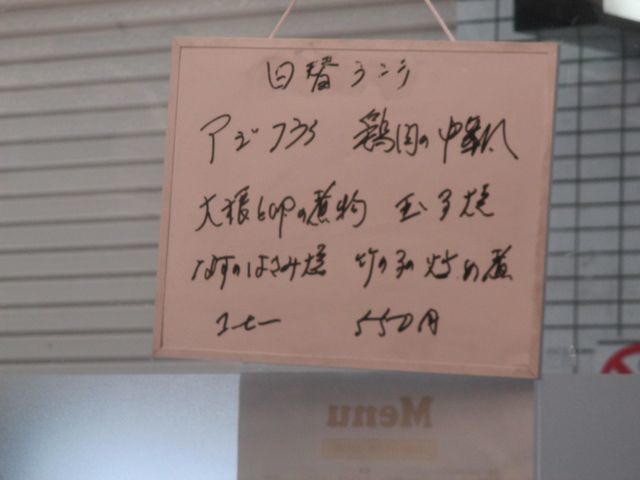 日替ランチ
アジフライ 鶏肉の中華風
大根と卵の煮物 玉子焼
なすのはさみ焼 竹の子の炒め煮
コーヒー 550円
Menu